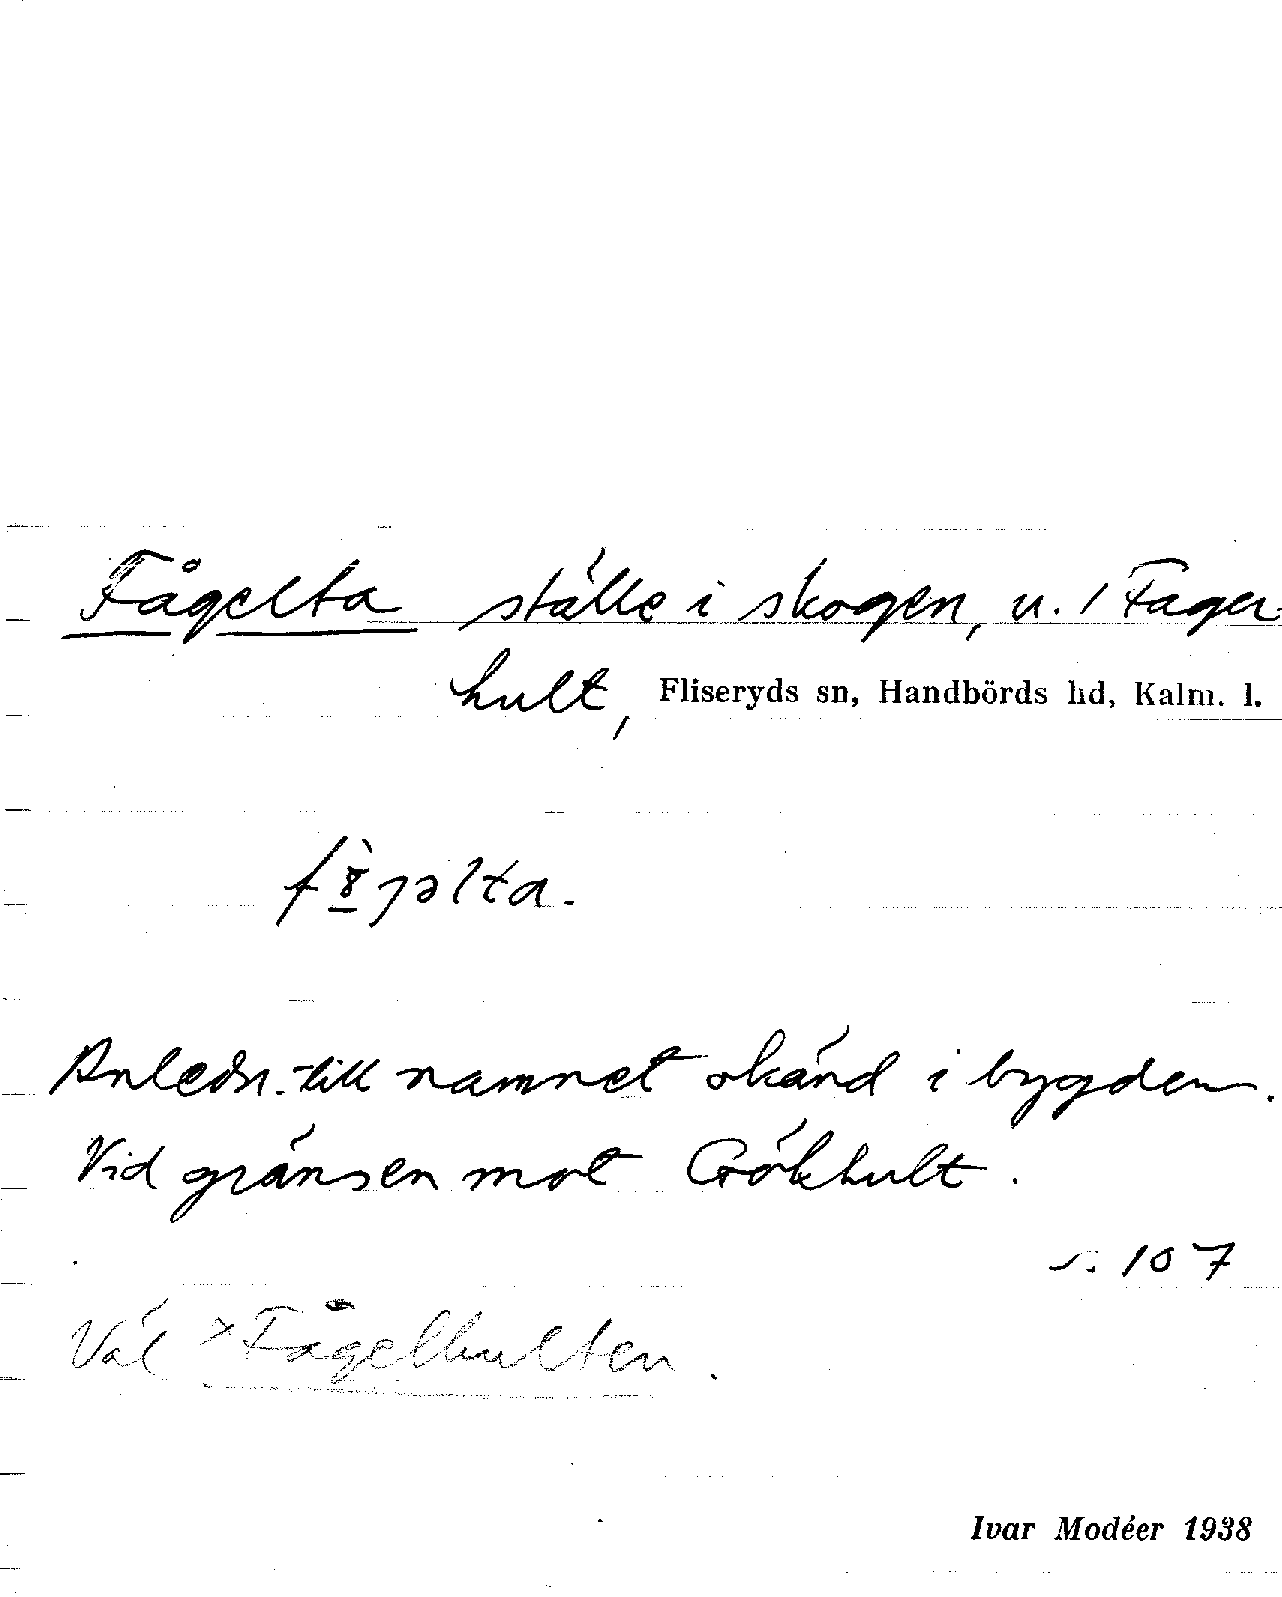 Fågelta ställe i skogen, u. / Fager
hult, Fliseryds sn, Handbörds hd, Kalm. l.
Anledn. till namnet okänd i bygden.
Vid gränsen mot Gökhult.
s. 107
Väl *Fågelhulten.
Ivar Modéer 1938